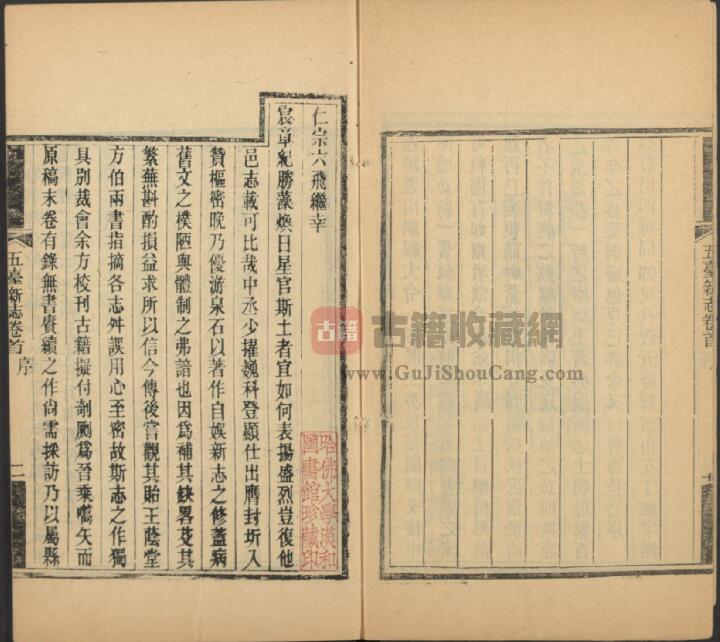 五臺新志卷首
仁宗六飛繼幸
宸章紀勝藻煥日星官斯土者宜如何表揚盛烈豈復他
邑志載可比哉中丞少擢巍科登顯仕出膺封圻入
贊樞密晚乃優游泉石以著作自娛新志之修蓋病
舊文之樸陋與體制之弗諳也因爲補其缺畧芟其
繁蕪斟酌損益求所以信今傳後嘗觀其貽王蔭堂
方伯兩書指摘各志舛誤用心至密故斯志之作獨
具別裁會余方校刊古籍擬付剞劂爲晉乘嚆矢而
原稿末卷有錄無書賡續之作尙需採訪乃以屬縣
五臺新志卷首 序 二
哈佛大學漢和
圖書館珍藏印
古籍 古籍收藏網
www.GuJiShouCang.com